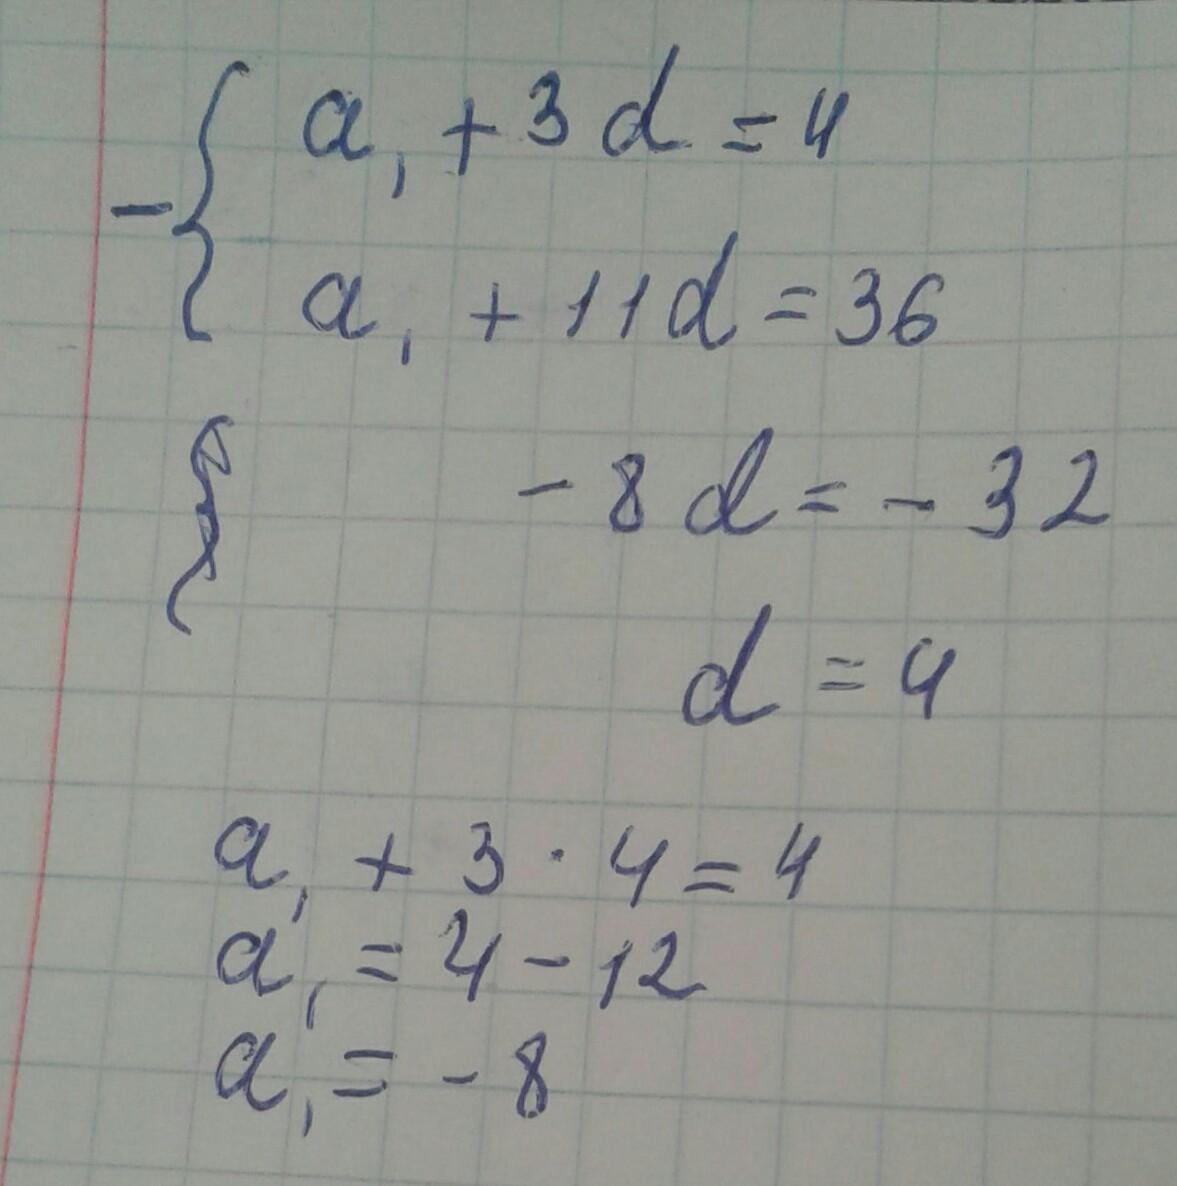 - { a₁ + 3d = 4
a₁ + 11d = 36
{ - 8d = - 32
d = 4
a₁ + 3 · 4 = 4
a₁ = 4 - 12
a₁ = - 8